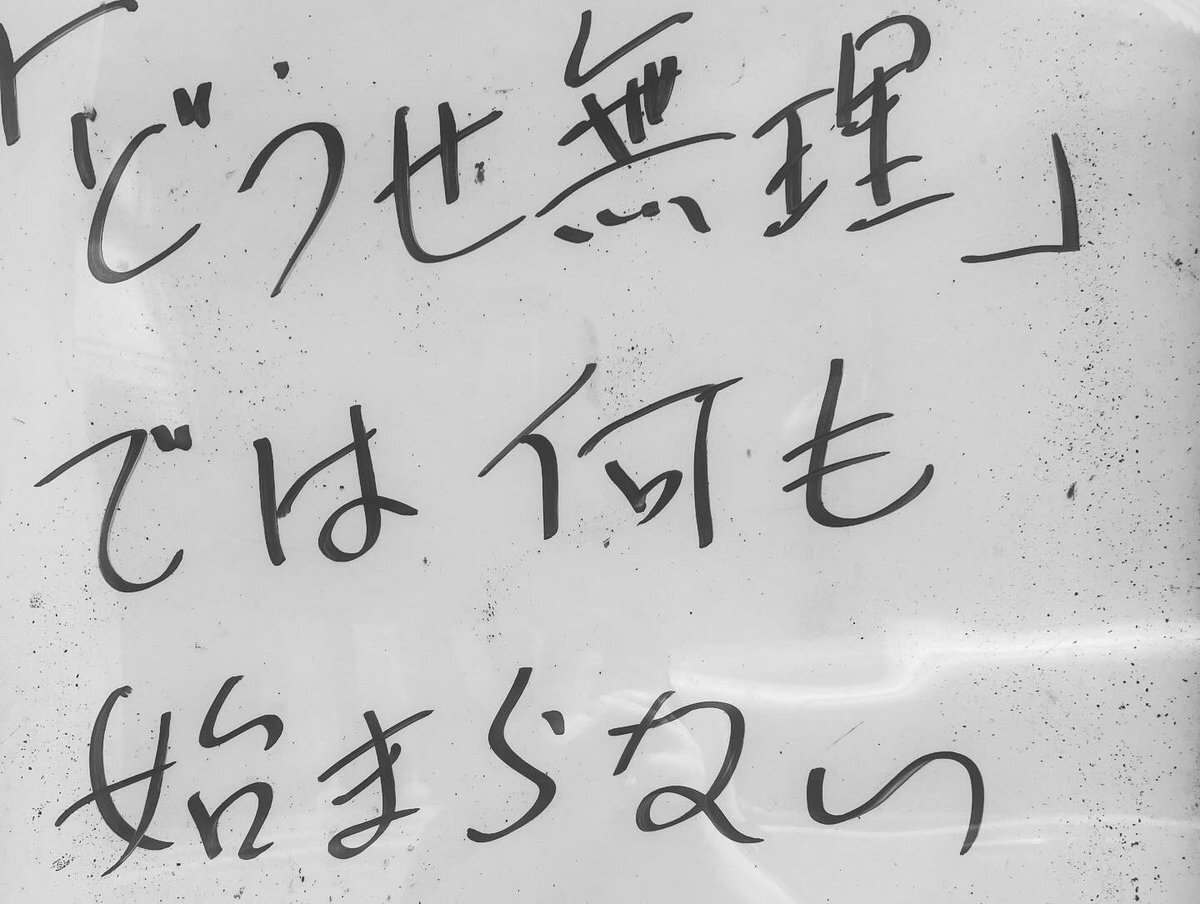 「どうせ無理」
では何も
始まらない